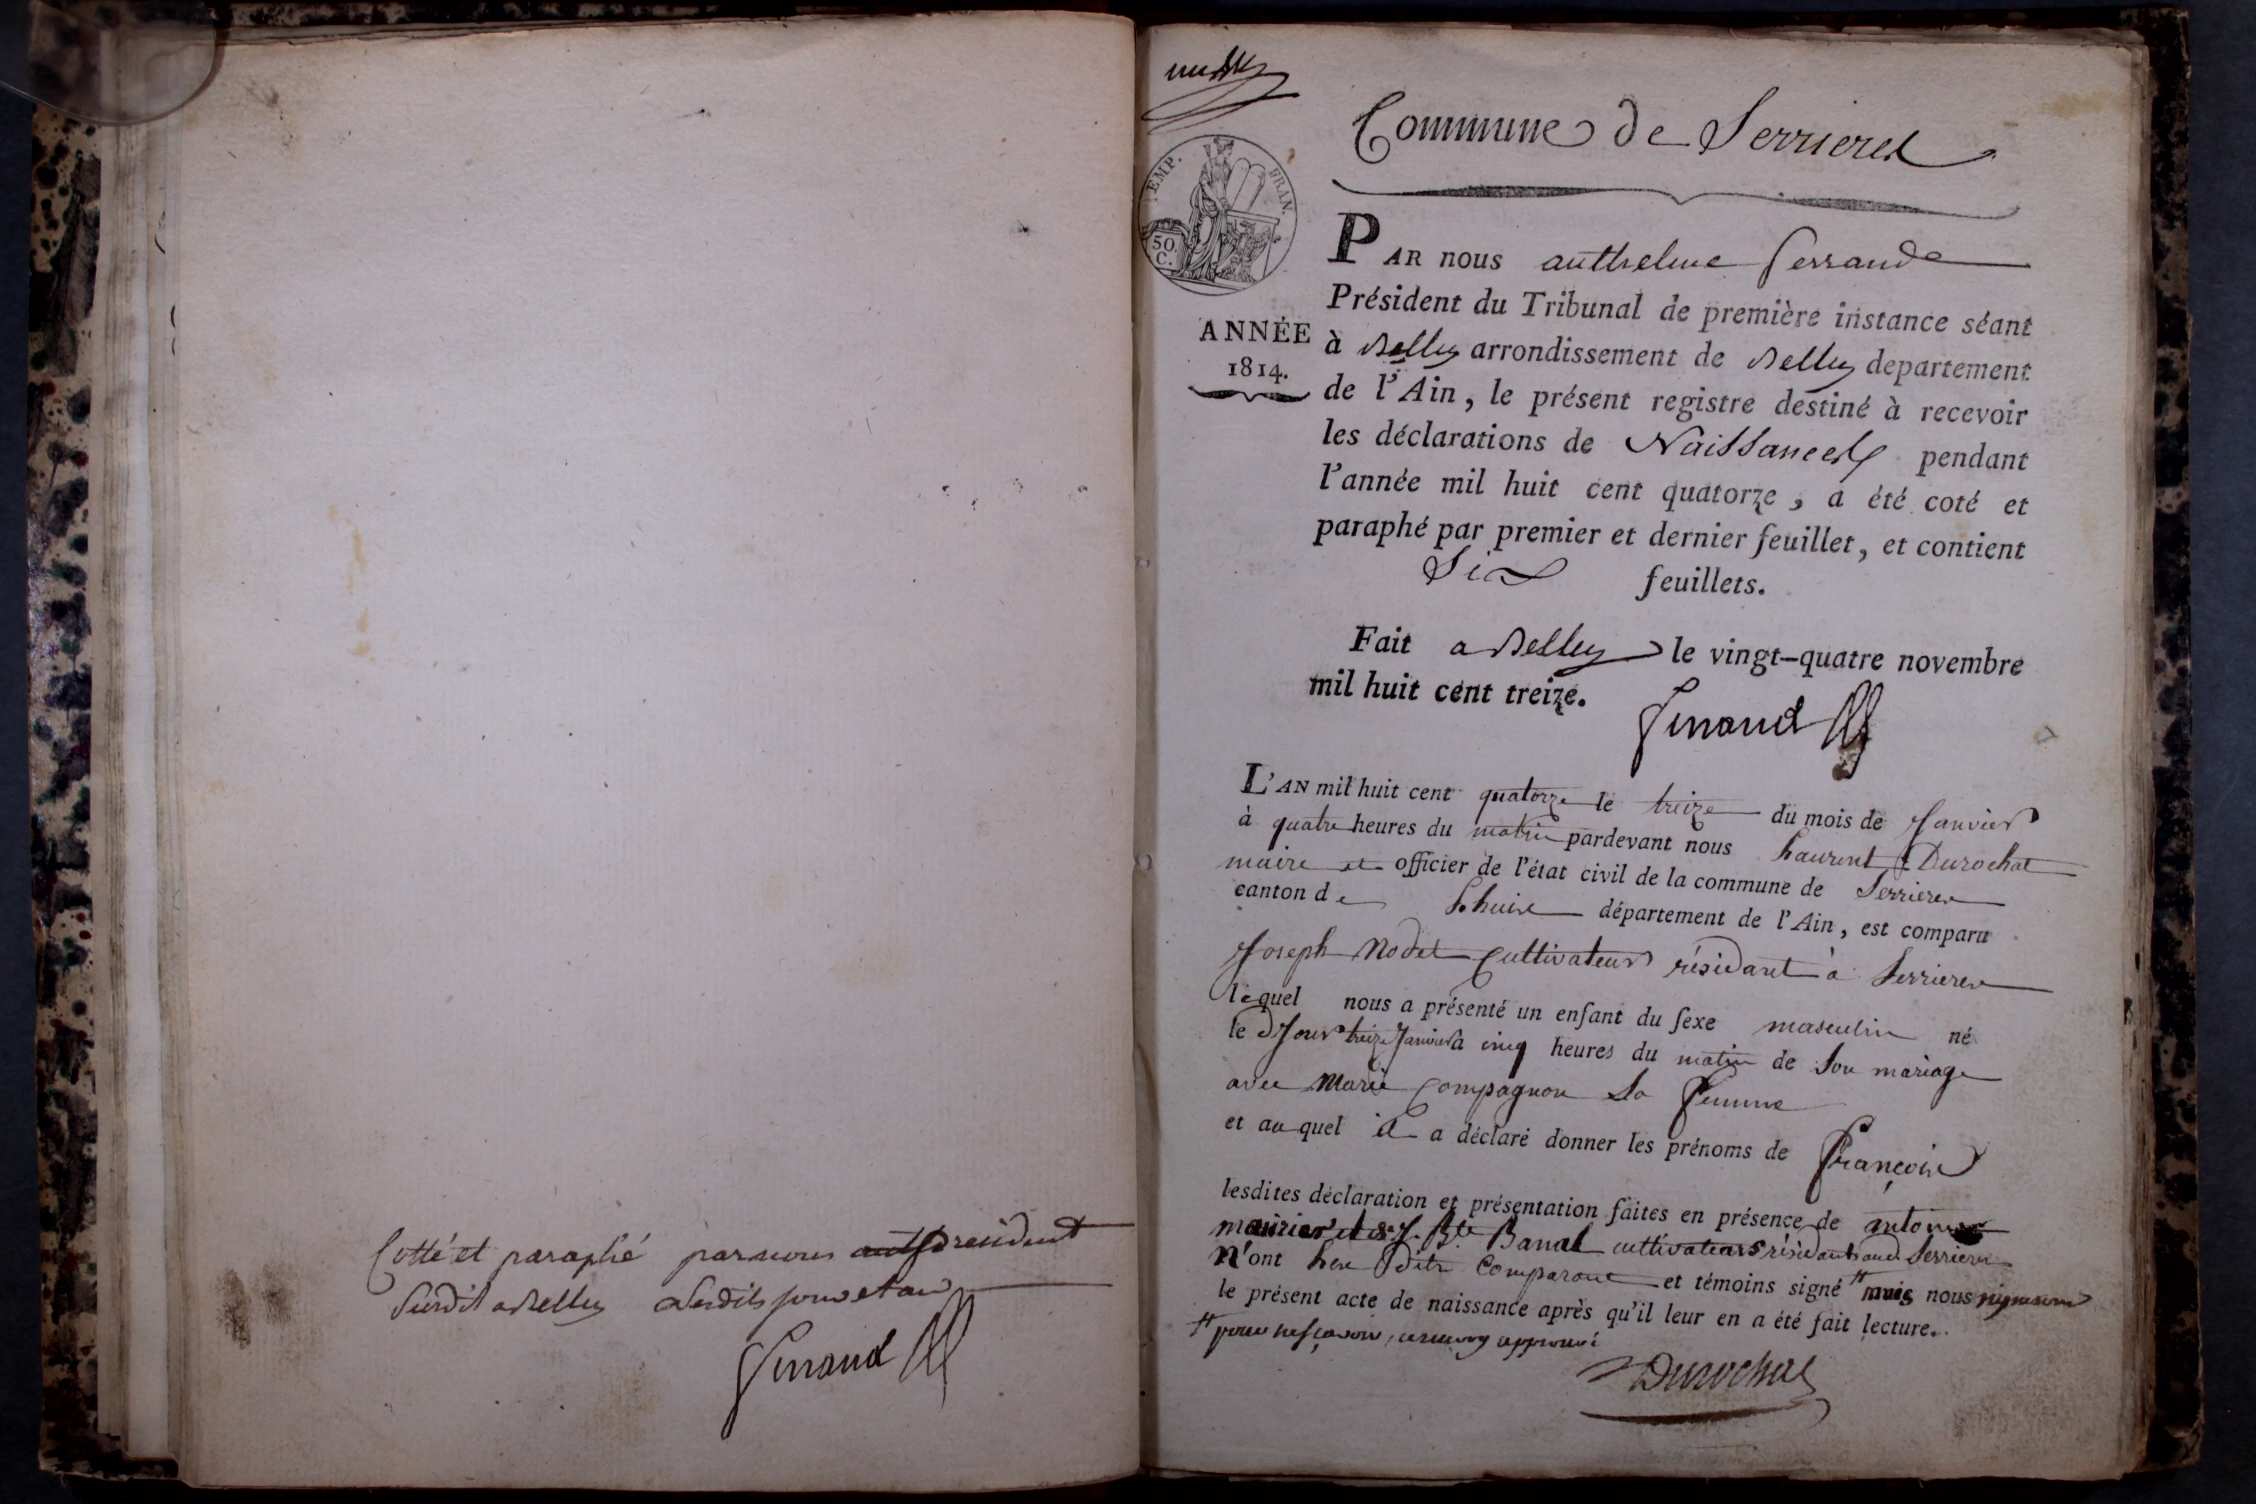 Cotté et paraphé par nous president
Susdit a Belley Lesdits jour et an
Ferrand
Commune de Serrieres
EMP. FRAN.
50
C.
ANNÉE
1814.
PAR nous anthelme ferrand
Président du Tribunal de première instance séant
à Belley arrondissement de Belley departement
de l'Ain, le présent registre destiné à recevoir
les déclarations de Naissances pendant
l'année mil huit cent quatorze, a été coté et
paraphé par premier et dernier feuillet, et contient
Six feuillets.
Fait a Belley le vingt-quatre novembre
mil huit cent treize.
Ferrand
L'AN mil huit cent quatorze le treize du mois de Janvier
à quatre heures du matin pardevant nous Laurent Durochat
maire et officier de l'état civil de la commune de Serrieres
canton de Lhuis département de l'Ain, est comparu
Joseph Nodet Cultivateur résidant à Serrieres
lequel nous a présenté un enfant du sexe masculin né
le dJour treize Janvier à cinq heures du matin de Son mariage
avec Marie Compagnon Sa femme
et auquel il a déclaré donner les prénoms de François
lesdites déclaration et présentation faites en présence de antoine
et de J. Bte Banal cultivateurs résidants aud. Serrieres
N'ont Les dits Comparant et témoins signé # mais nous signerons
le présent acte de naissance après qu'il leur en a été fait lecture.
# pour ne sçavoir, ce renvoy approuvé
Durochat